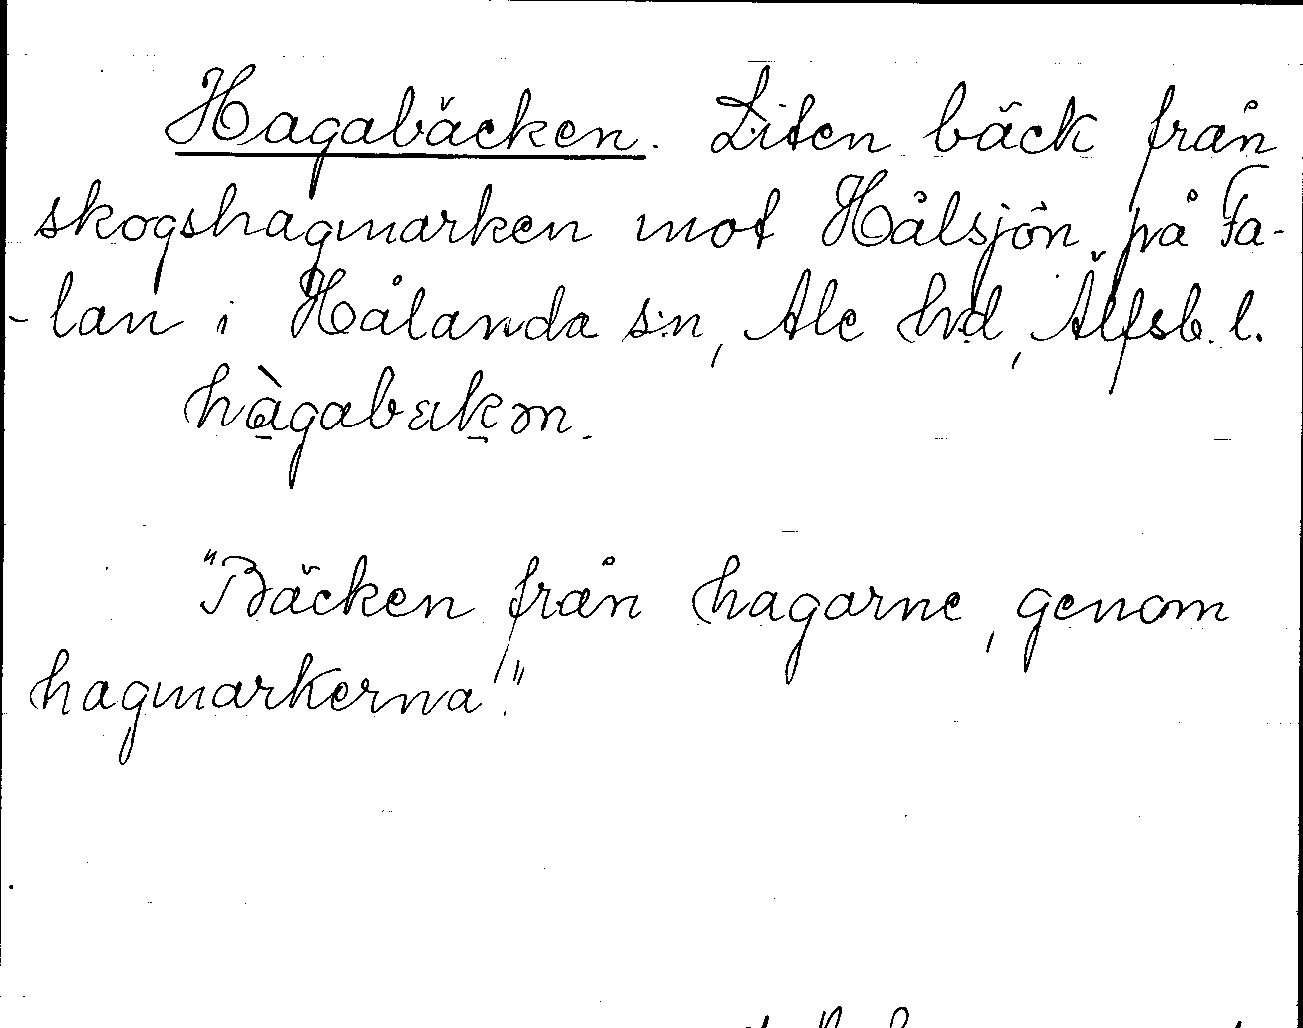 Hagabäcken. Liten bäck från
skogshagmarken mot Hålsjön på Fa-
-lan i Hålanda s:n, Ale hd, Älfsb. l.
hàgabækən.
"Bäcken från hagarne, genom
hagmarkerna".